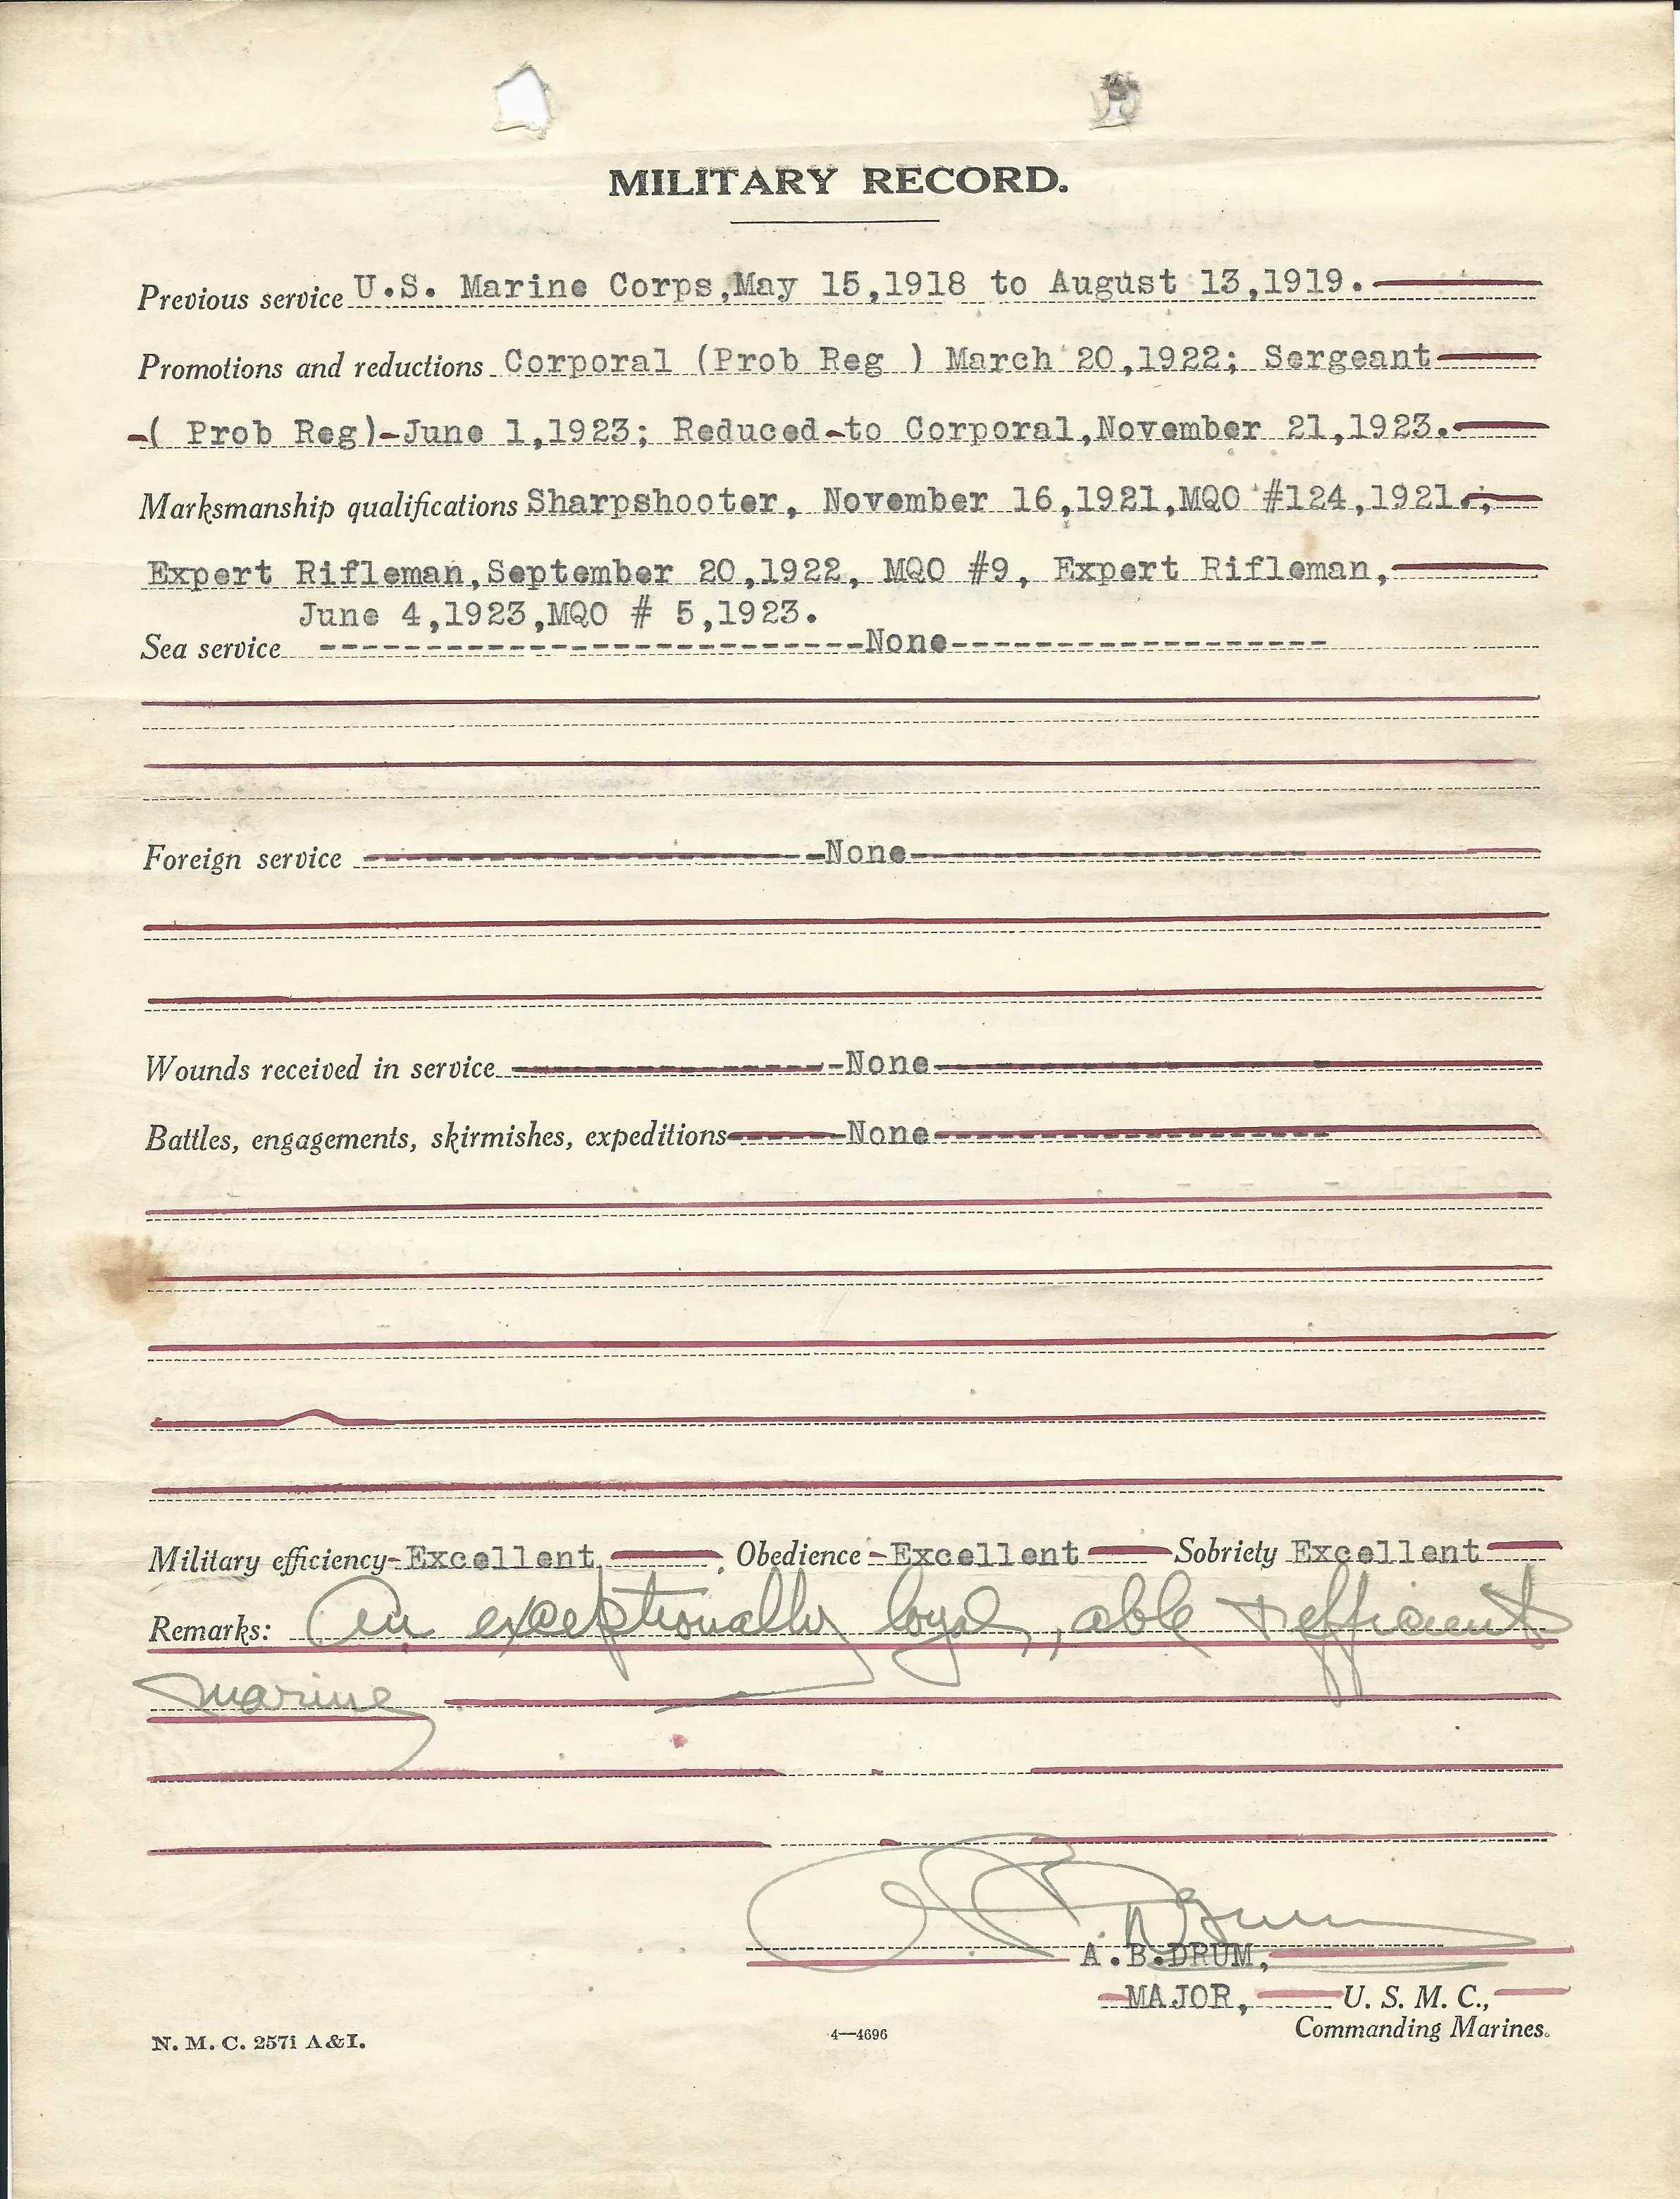 MILITARY RECORD.
Previous service U.S. Marine Corps,May 15,1918 to August 13,1919.
Promotions and reductions Corporal (Prob Reg ) March 20,1922; Sergeant
( Prob Reg)-June 1,1923; Reduced-to Corporal,November 21,1923.
Marksmanship qualifications Sharpshooter, November 16,1921,MQO #124,1921.;
Expert Rifleman,September 20,1922, MQO #9, Expert Rifleman,
June 4,1923,MQO # 5,1923.
Sea service --------------------------None------------------
Foreign service ----------------------None-------------------
Wounds received in service ---------------None-------------------
Battles, engagements, skirmishes, expeditions------None-------------------
Military efficiency-Excellent. Obedience-Excellent Sobriety Excellent
Remarks: An exceptionally loyal, able + efficient
marine.
A B Drum
A.B.DRUM,
MAJOR, U. S. M. C.,
Commanding Marines.
N. M. C. 257i A&I.
4—4696